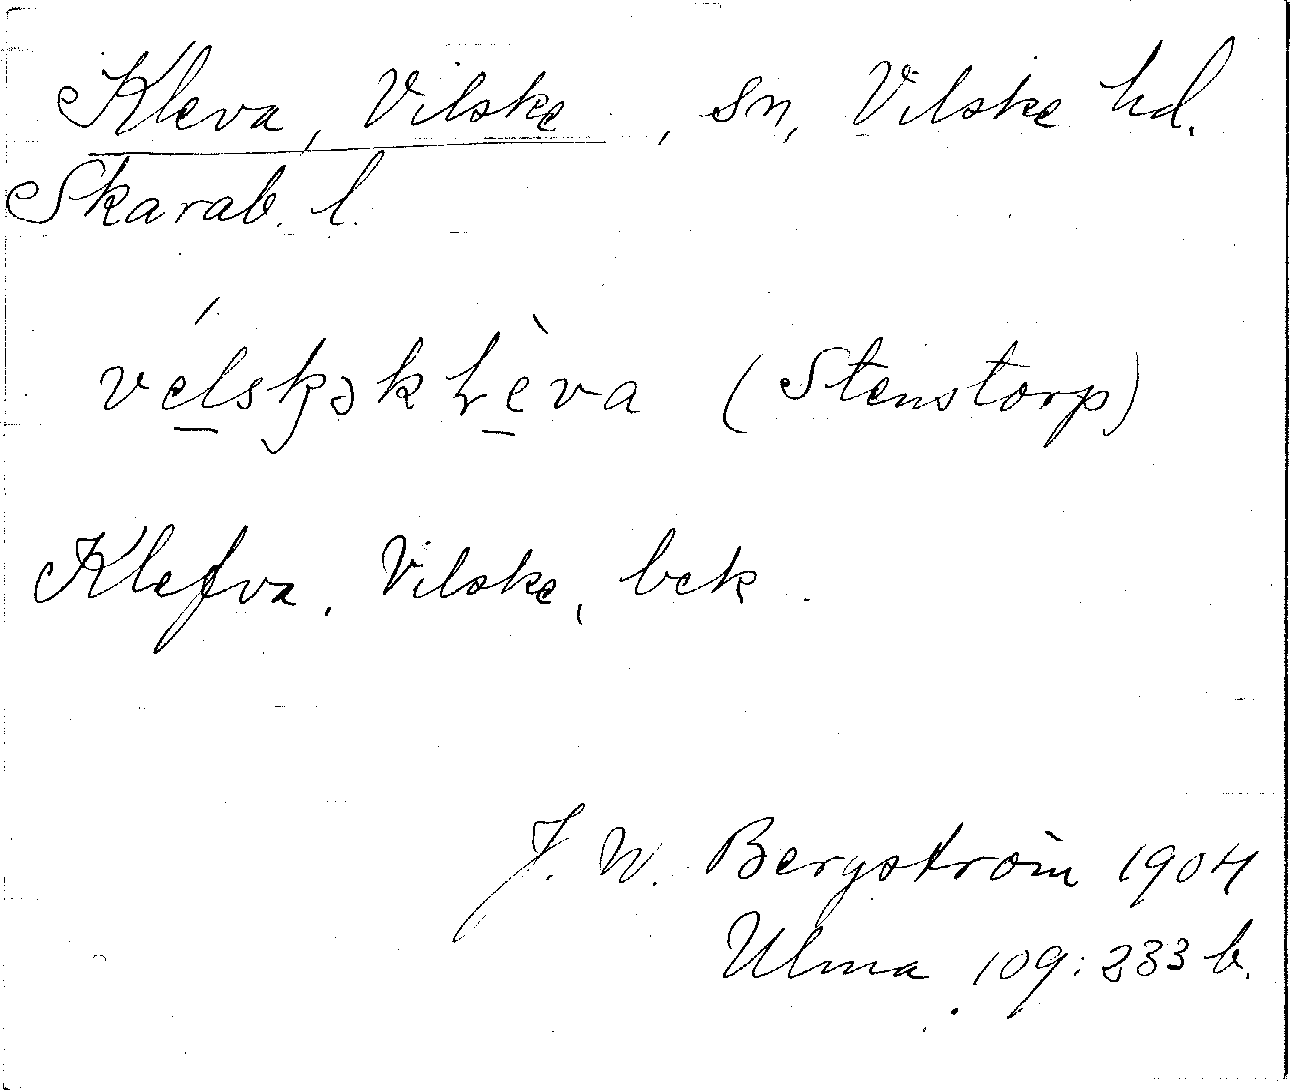 Kleva, Vilske, sn, Vilske hd.
Skarab. l.
vélskəkłèva (Stenstorp)
Klefva, Vilske, bek.
J. W. Bergström 1904
Ulma 109:233 b.